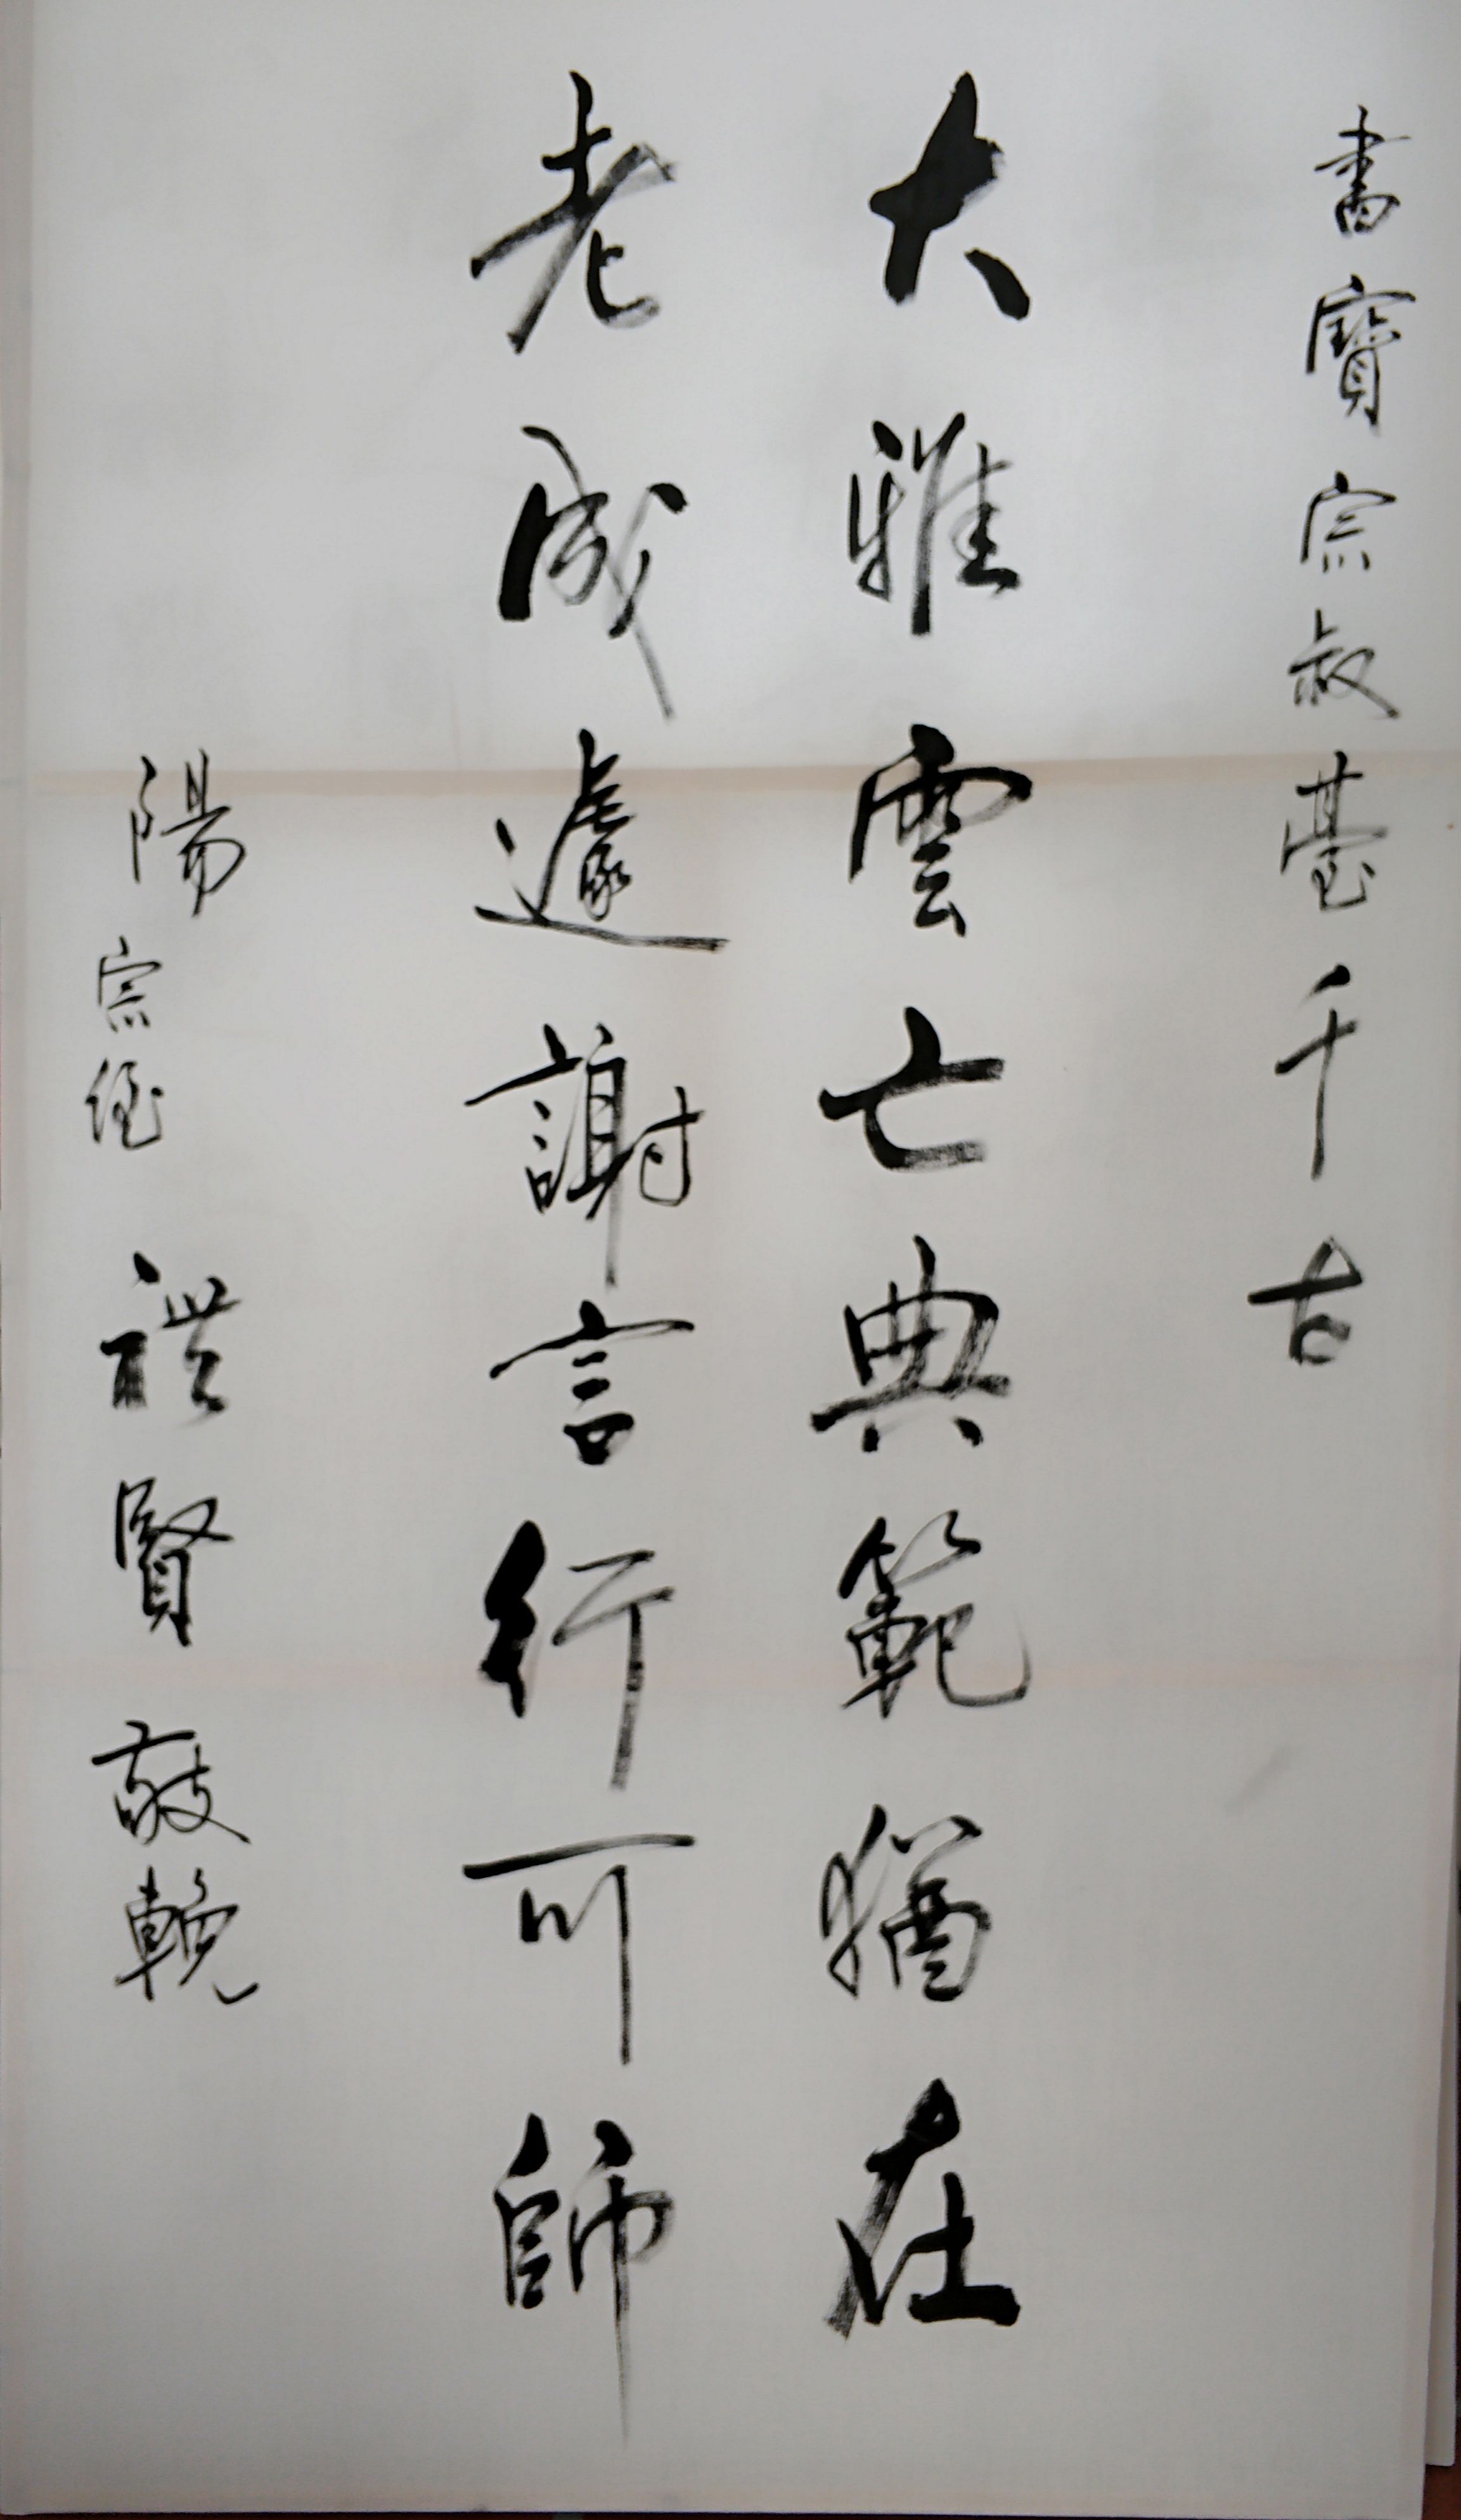 書寶宗叔臺千古
大雅云亡典範猶在
老成遽謝言行可師
陽宗侄禮賢敬輓